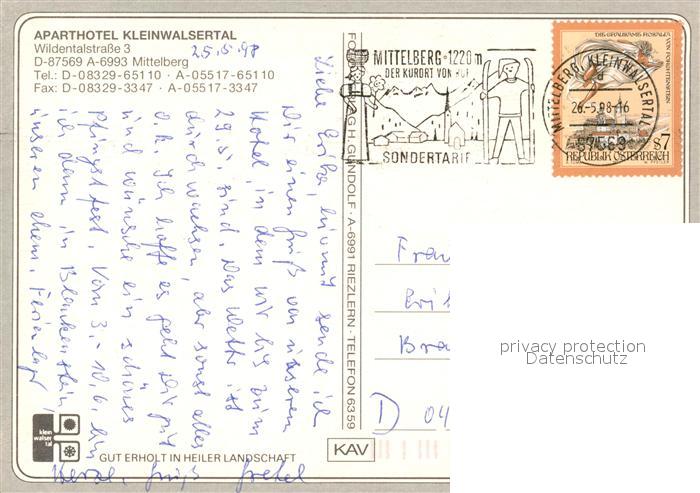 APARTHOTEL KLEINWALSERTAL
Wildentalstraße 3
D-87569 A-6993 Mittelberg
Tel.: D-08329-65110 · A-05517-65110
Fax: D-08329-3347 · A-05517-3347
25.5.98
Liebe Erika, hiermit sende ich
Dir einen Gruß von unserem
Hotel, in dem wir bis zum
29.5. sind. Das Wetter ist
durchwachsen, aber sonst alles
o.k. Ich hoffe es geht Dir gut
und wünsche ein schönes
Pfingstfest. Vom 3.-10.6. bin
ich dann in Blankenstein,
unserem ehem. Ferienlager!
Herzl. Gruß Gretel
GUT ERHOLT IN HEILER LANDSCHAFT
klein
walser
tal
GUNDOLF · A-6991 RIEZLERN · TELEFON 6359
KAV
MITTELBERG · 1220m
DER KURORT VON RUF
SONDERTARIF
MITTELBERG, KLEINWALSERTAL
d
26.-5.98-16
87569
S7
REPUBLIK ÖSTERREICH
Frau
Eri
Bra
D 04
privacy protection
Datenschutz